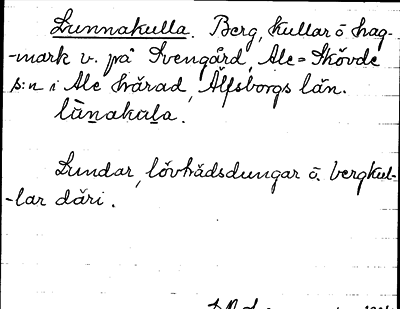 Lunnakulla. Berg, kullar o hag-
-mark v. på Svengård, Ale-Skövde
s:n i Ale härad, Älfsborgs län.
lùnakula.
Lundar, lövträdsdungar o. bergkul-
-lar däri.